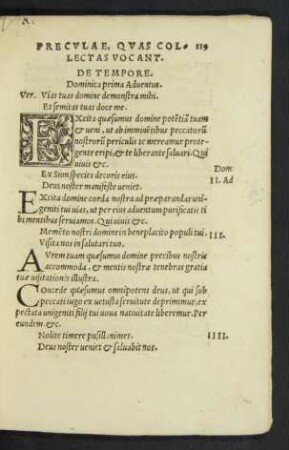 PRECVLAE, QVAS COL- 119
LECTAS VOCANT.
DE TEMPORE.
Dominica prima Aduentus.
Ver. Vias tuas domine demonstra mihi.
Et semitas tuas doce me.
EXcita quæsumus domine potētiā tuam
& ueni, ut ab imminētibus peccatorū
nostrorū periculis te mereamur prote-
gente eripi, & te liberante saluari. Qui
uiuis &c.
Dom
Ex Sion species decoris eius.
II. Ad
Deus noster manifeste ueniet.
EXcita domine corda nostra ad præparandas uni-
geniti tui uias, ut per eius aduentum purificatis ti
bi mentibus seruiamus. Qui uiuis &c.
Memēto nostri domine in beneplacito populi tui.
III.
Visita nos in salutari tuo.
AVrem tuam quæsumus domine precibus nostris
accommoda, & mentis nostræ tenebras gratia
tuæ uisitationis illustra.
COncede quæsumus omnipotens deus, ut qui sub
peccati iugo ex uetusta seruitute deprimimur, ex
pectata unigeniti filij tui noua natiuitate liberemur. Per
eundem &c.
Nolite timere pusillanimes.
IIII.
Deus noster ueniet & saluabit nos.